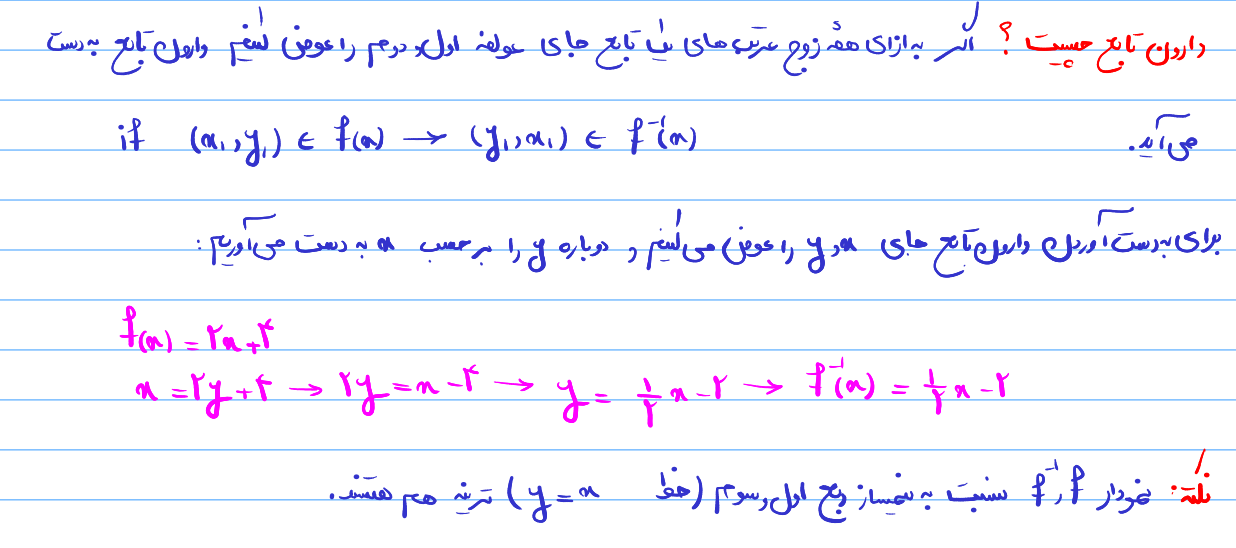 وارون تابع چیست؟ اگر به ازای همهٔ زوج مرتب های یک تابع جای مولفه اول و دوم را عوض کنیم وارون تابع به دست
می آید. if (x₁, y₁) ∈ f(x) → (y₁, x₁) ∈ f⁻¹(x)
برای به دست آوردن وارون تابع جای x و y را عوض می کنیم و دوباره y را برحسب x به دست می آوریم:
f(x) = ۲x + ۴
x = ۲y + ۴ → ۲y = x - ۴ → y = ۱/۲ x - ۲ → f⁻¹(x) = ۱/۲ x - ۲
نکته: نمودار f و f⁻¹ نسبت به نیمساز ربع اول و سوم (خط y = x) قرینه هم هستند.